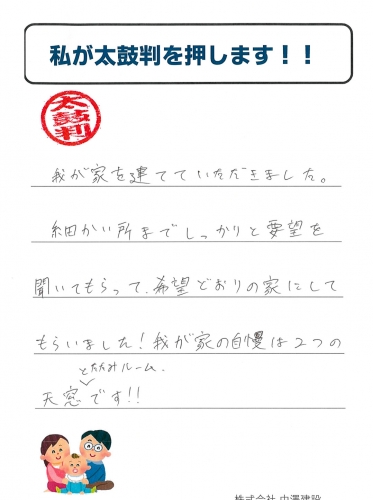 私が太鼓判を押します！！
太鼓判
我が家を建てていただきました。
細かい所までしっかりと要望を
聞いてもらって、希望どおりの家にして
もらいました！我が家の自慢は２つの
とたたみルーム.
天窓です!!
株式会社 中澤建設